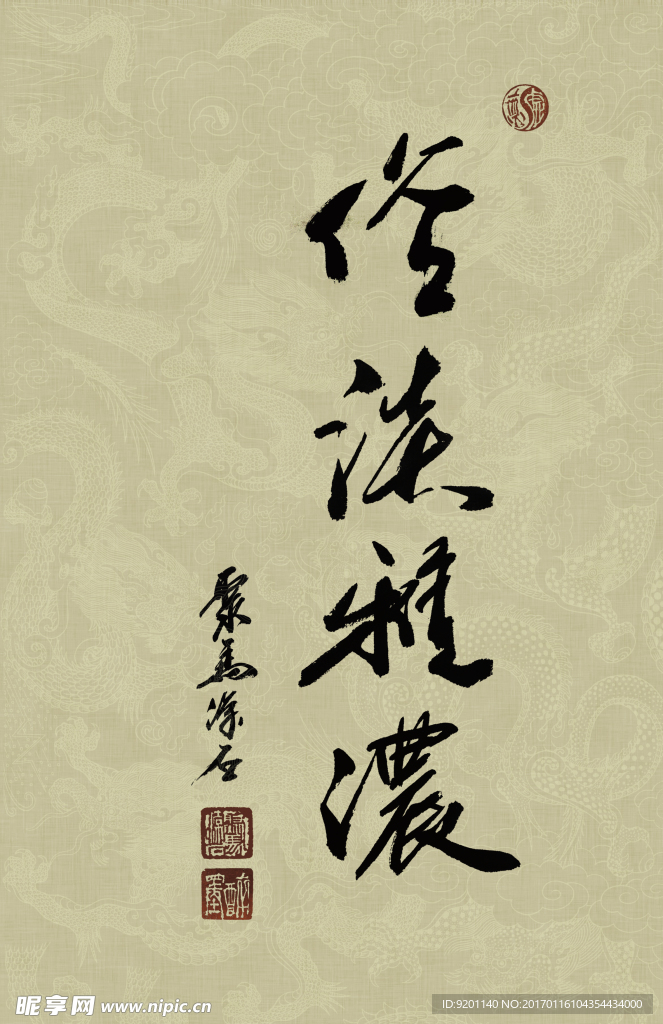 俗淡雅濃
聚馬滌石
昵享网 www.nipic.cn
ID:9201140 NO:20170116104354434000